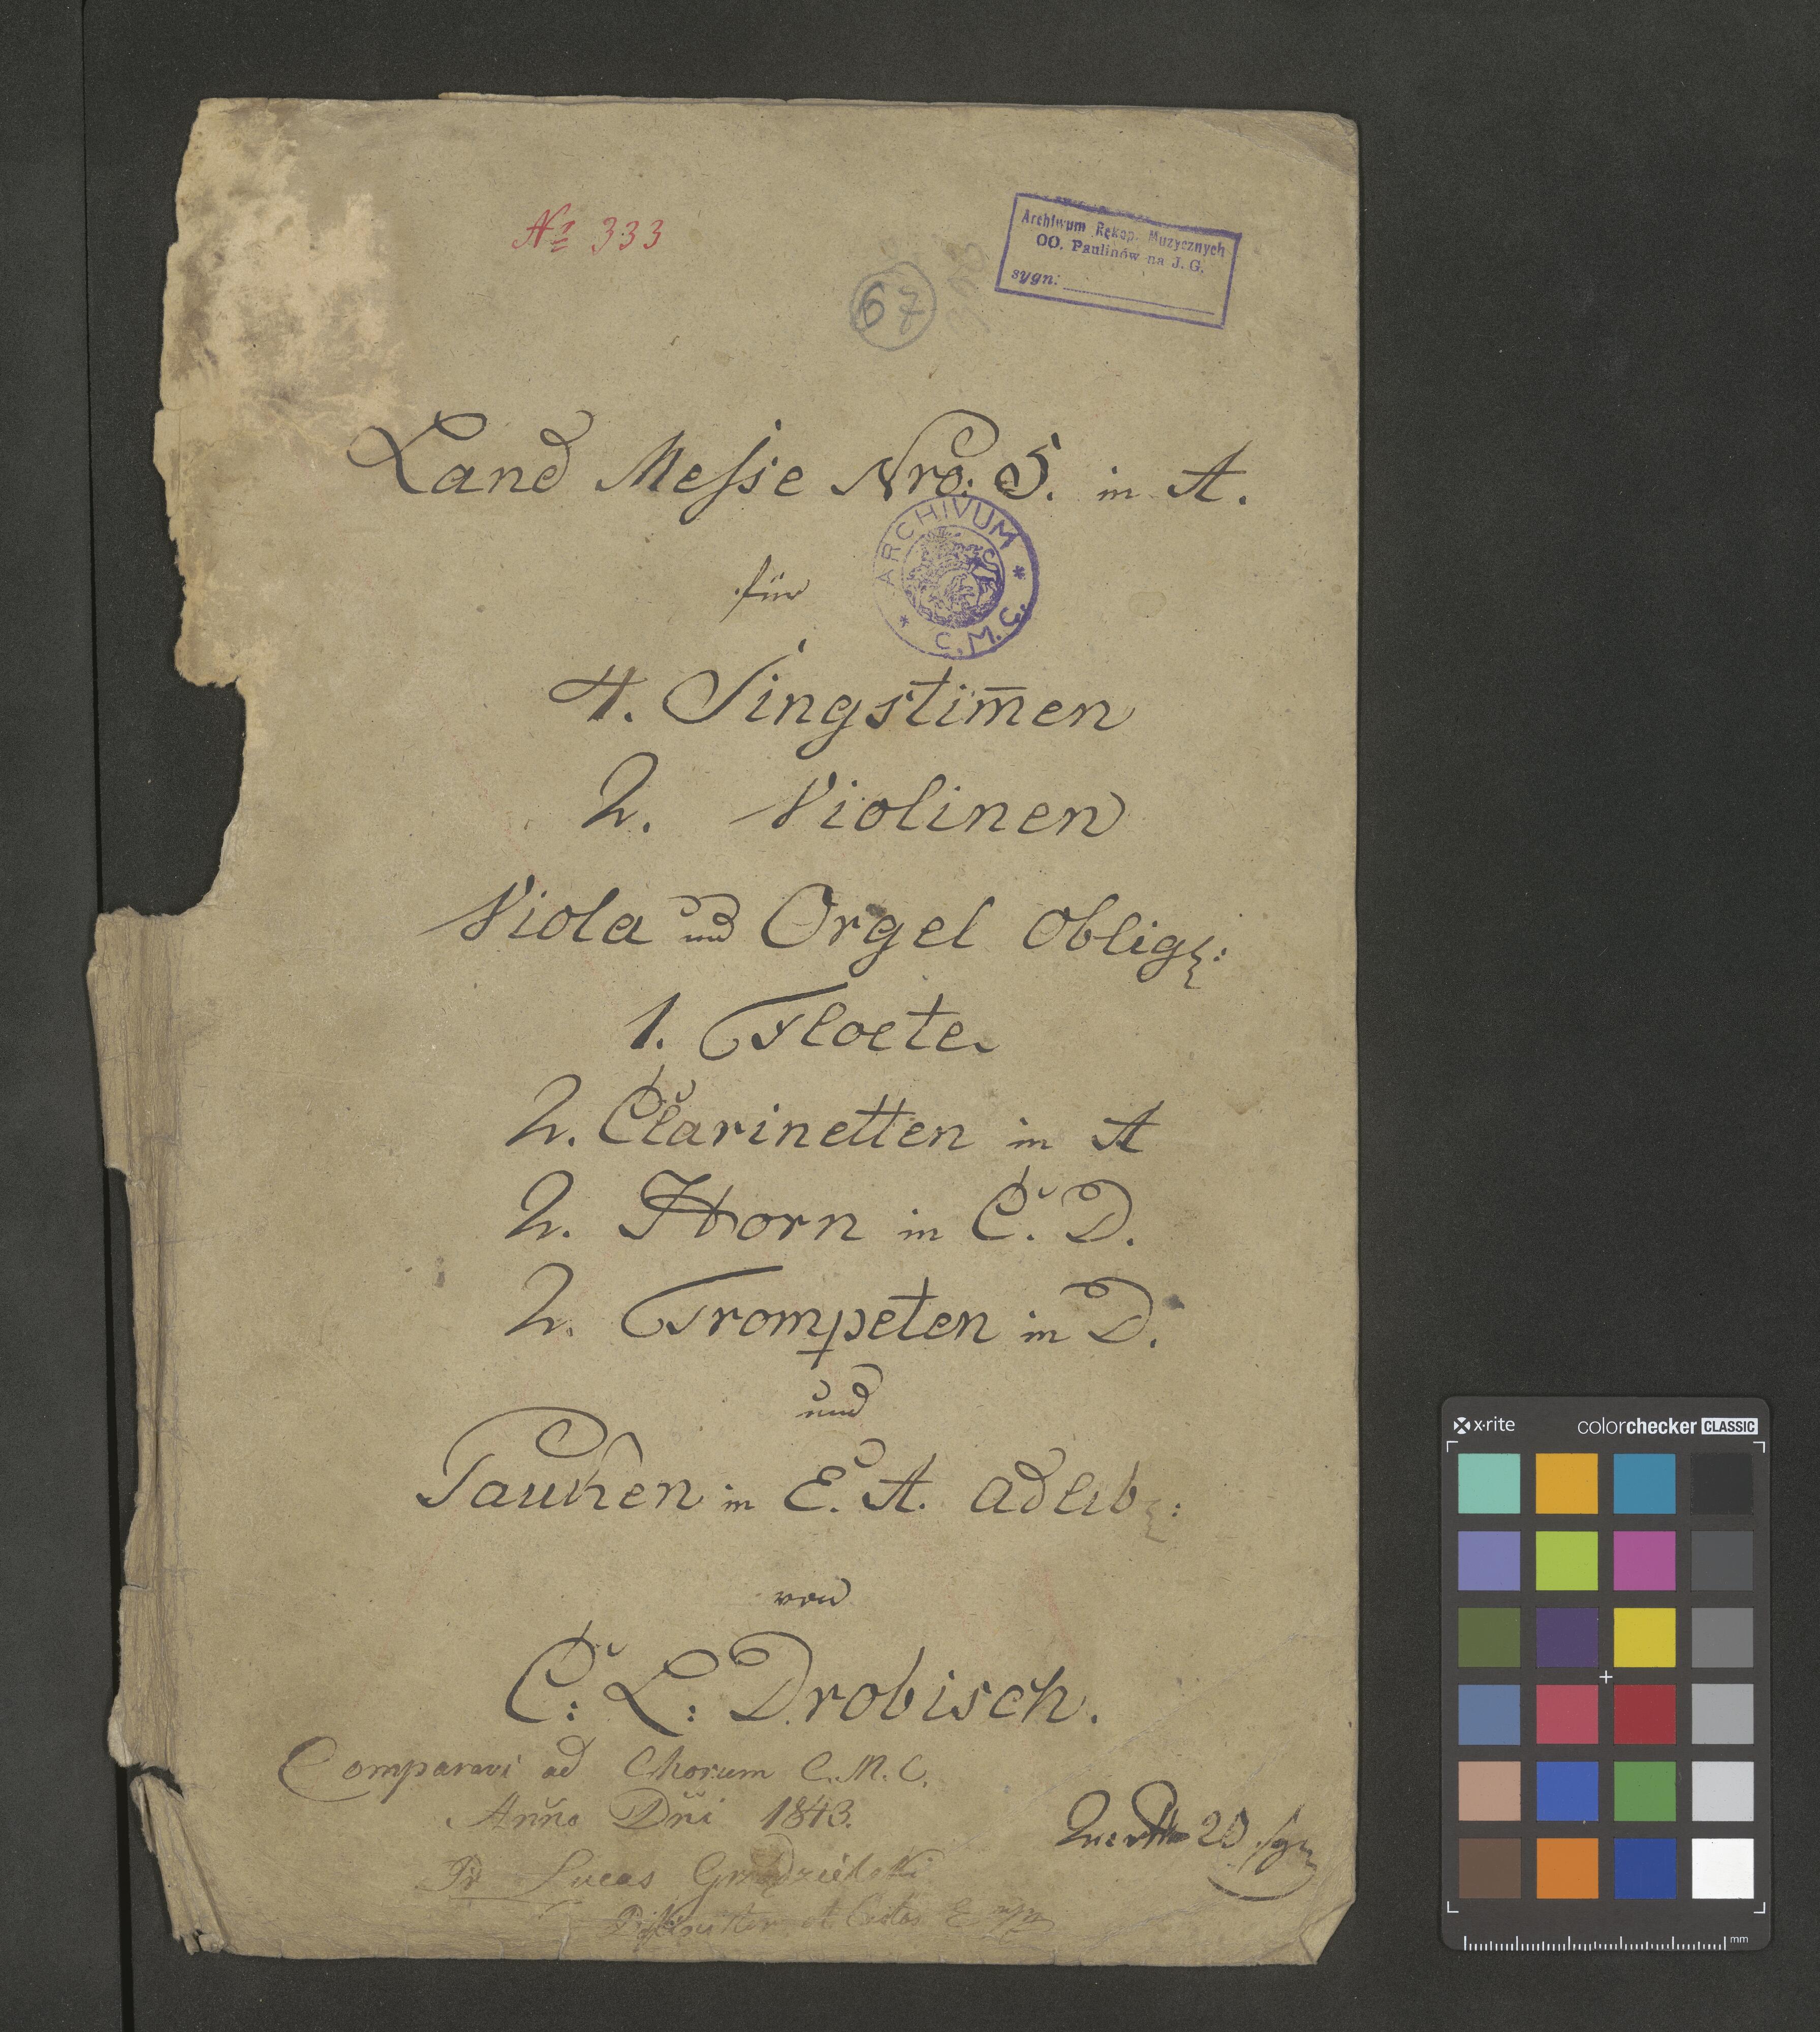 № 333
67
Archiwum Rękop. Muzycznych
OO. Paulinów na J. G.
sygn:
Land Messe Nro: 5. in A.
ARCHIVUM * C.M.C. *
für
4. Singstim̅en
2. Violinen
Viola und Orgel Oblig:
1. Floete
2. Clarinetten in A
2. Horn in C. D.
2. Trompeten in D.
und
Pauken in E. A. ad lib:
von
C: L: Drobisch.
Comparavi ad Chorum C.M.C.
Anno Dni 1843.
20 sgr
Lucas
x-rite colorchecker CLASSIC
mm